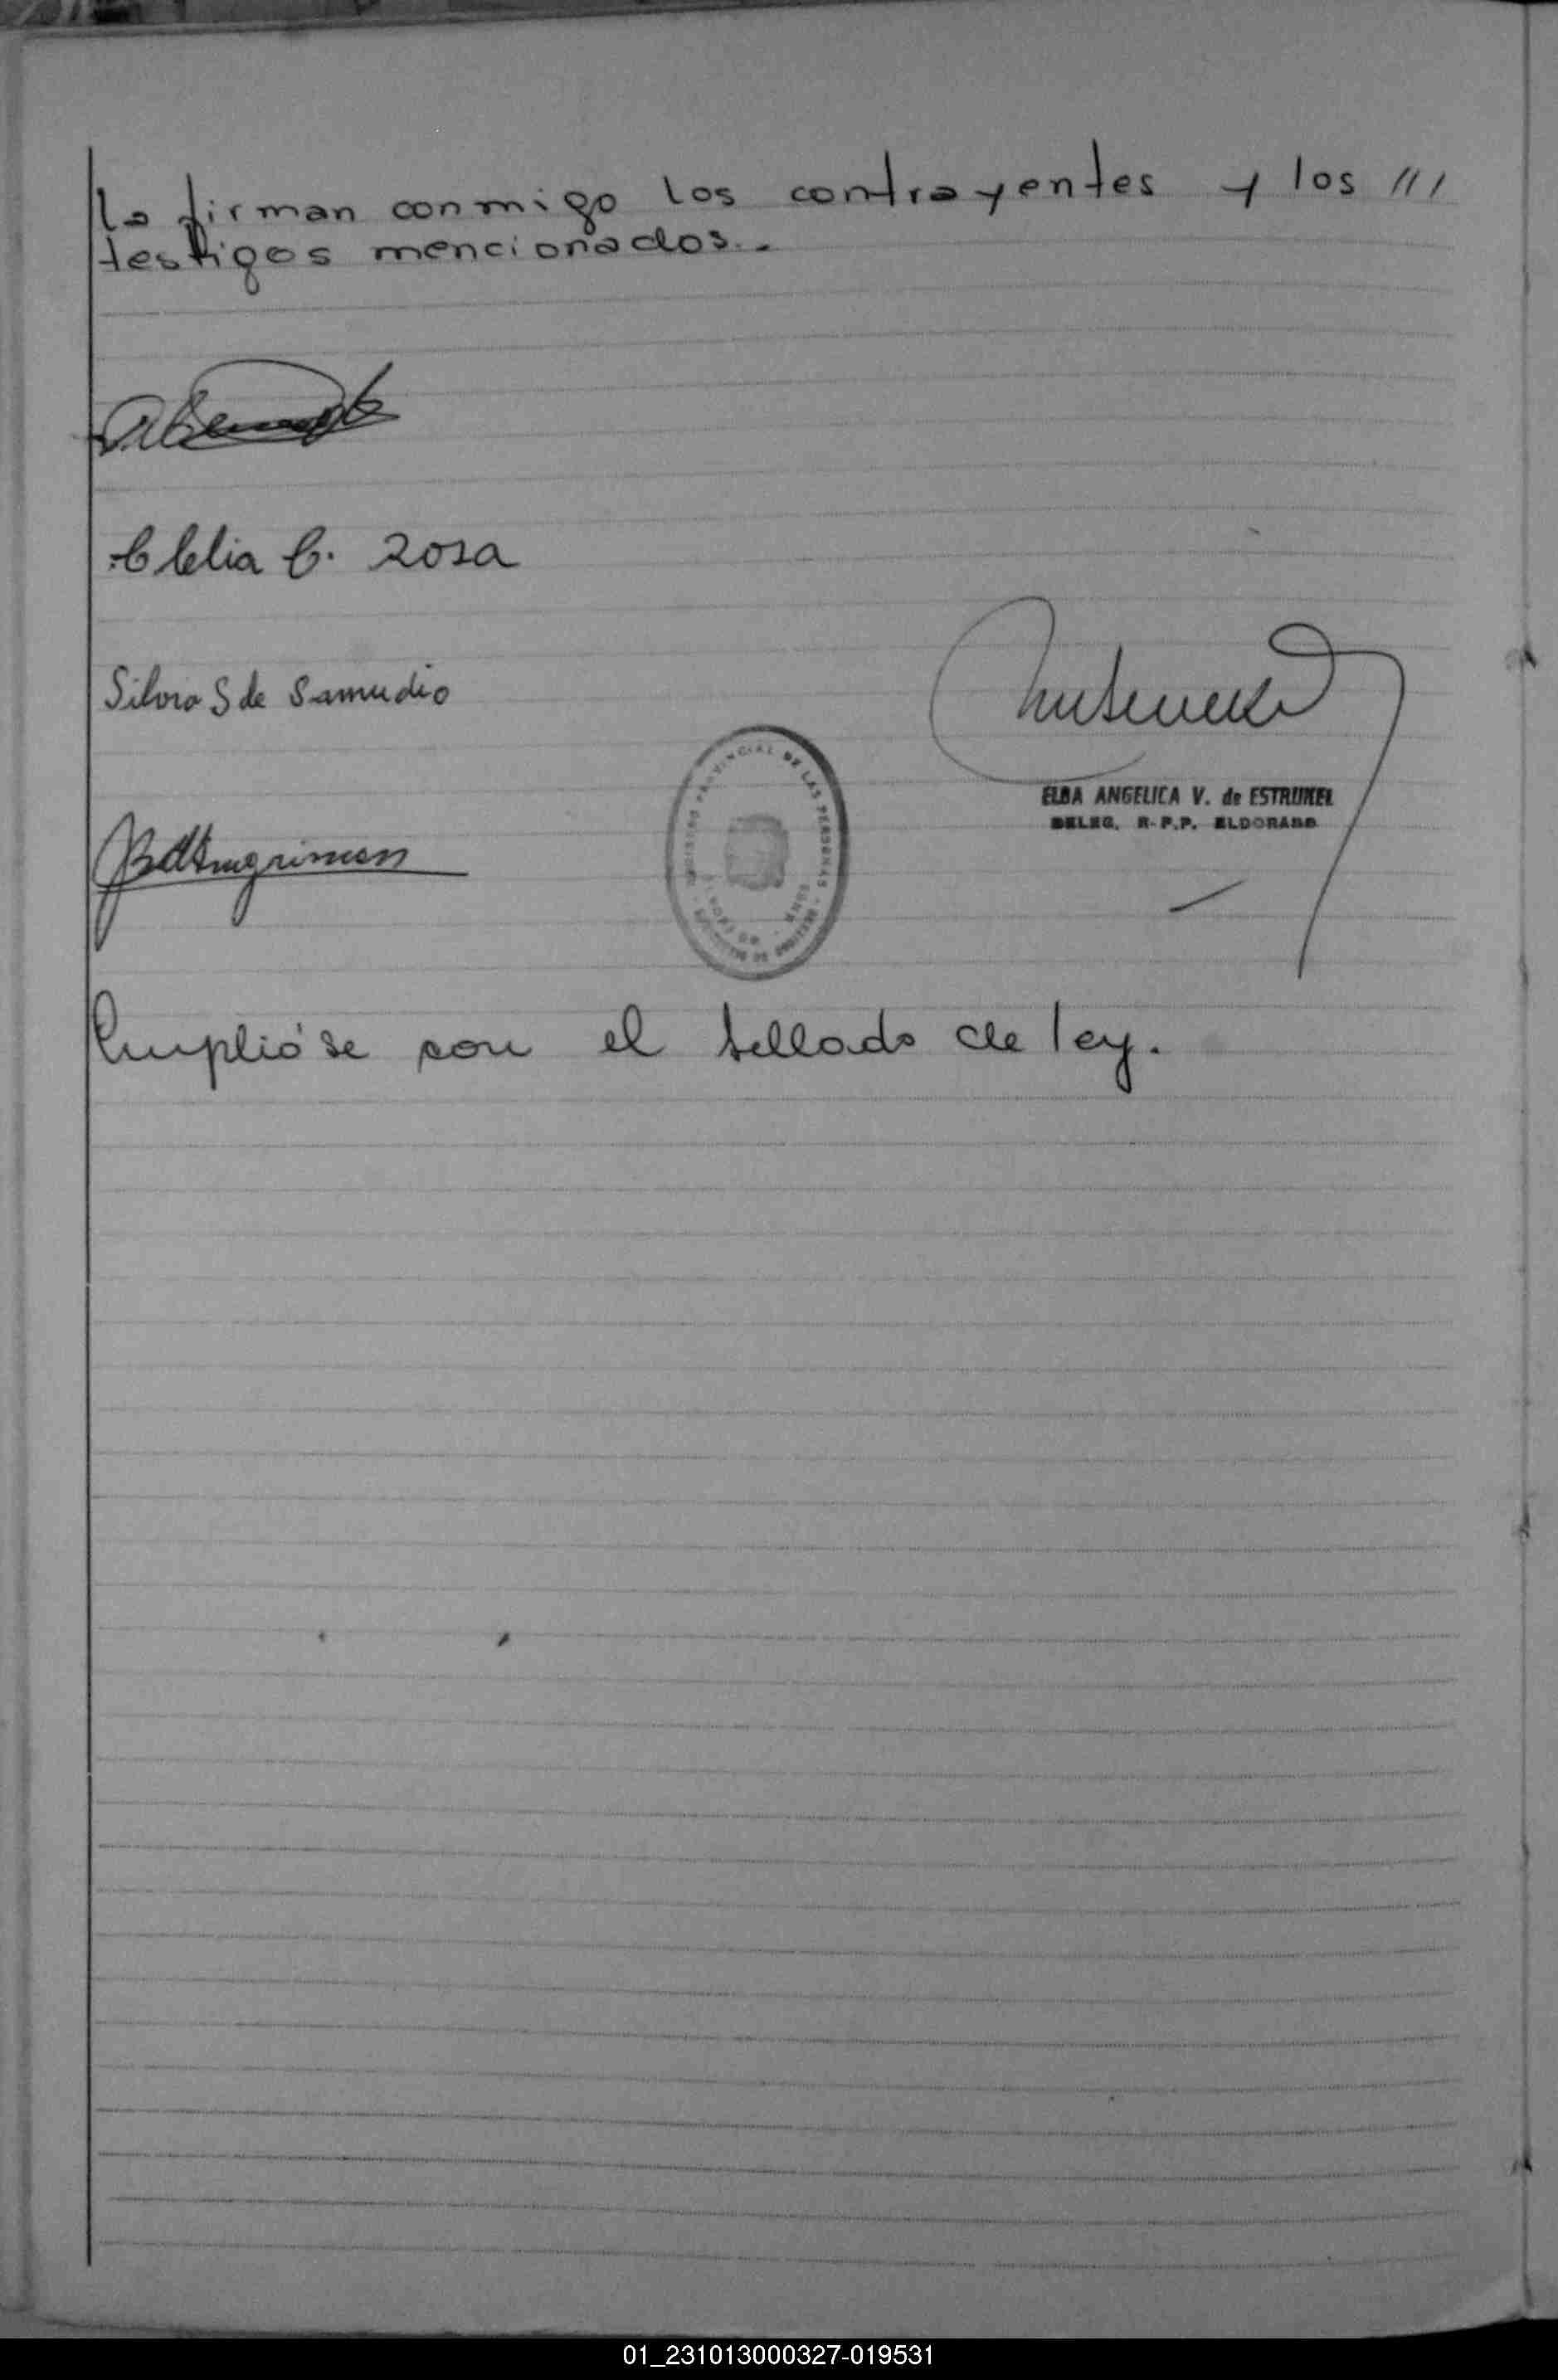 la firman conmigo los contrayentes y los ///
testigos mencionados.-
Clelia C. Rosa
Silvia S de Samudio
ELBA ANGELICA V. de ESTRUKEL
DELEG. R.P.P. ELDORADO
REGISTRO PROVINCIAL DE LAS PERSONAS
Cumplióse con el sellado de ley.
01_231013000327-019531